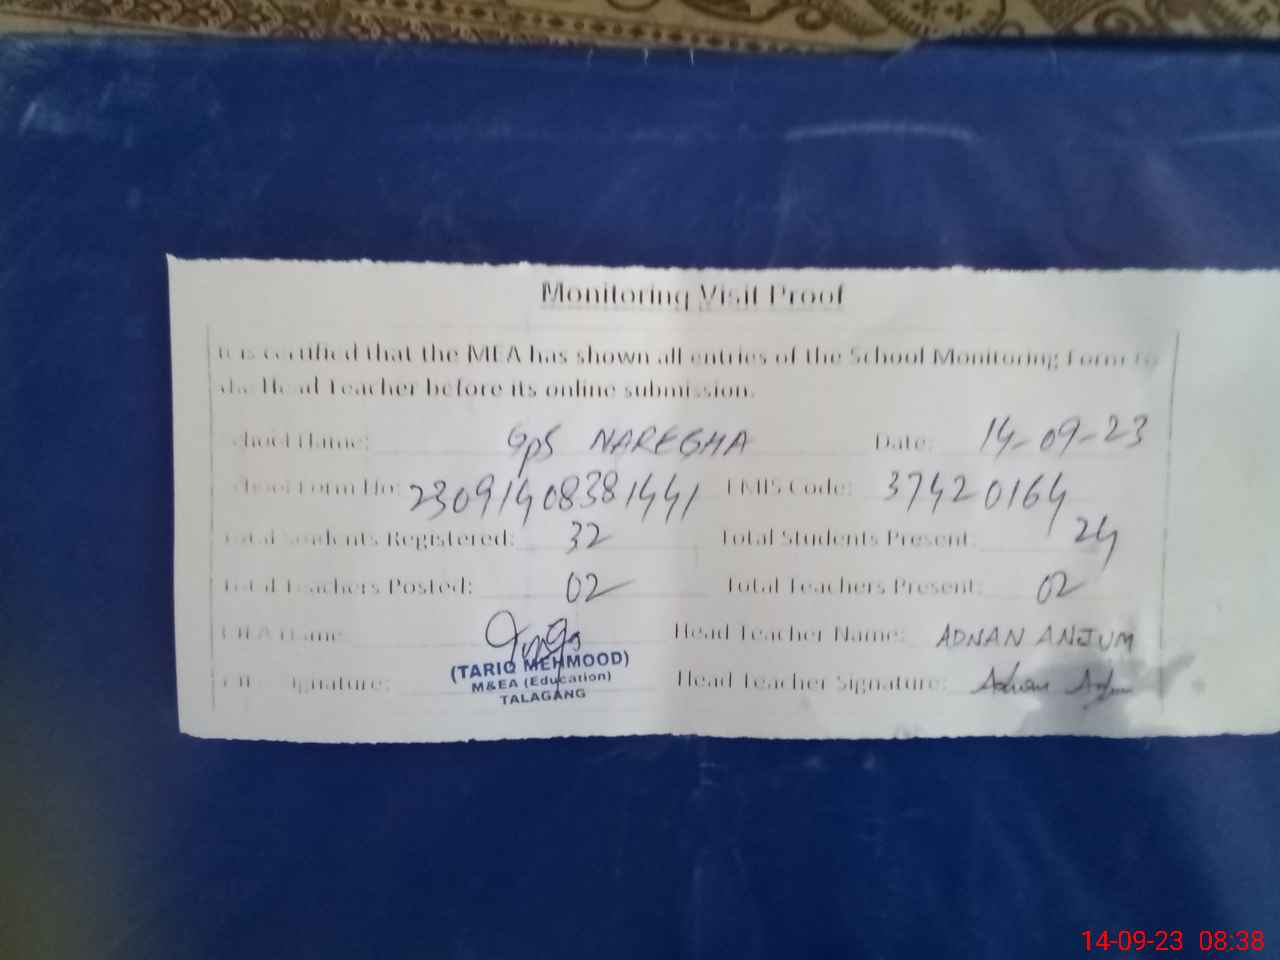 Monitoring Visit Proof
It is certified that the MEA has shown all entries of the School Monitoring Form to
the Head Teacher before its online submission.
School Name: GPS NAREGHA Date: 14-09-23
School Form No: 23091408381441 EMIS Code: 37420164
Total Students Registered: 32 Total Students Present: 24
Total Teachers Posted: 02 Total Teachers Present: 02
MEA Name: Head Teacher Name: ADNAN ANJUM
(TARIQ MEHMOOD)
MEA Signature: Head Teacher Signature: Adnan Anjum
M&EA (Education)
TALAGANG
14-09-23 08:38